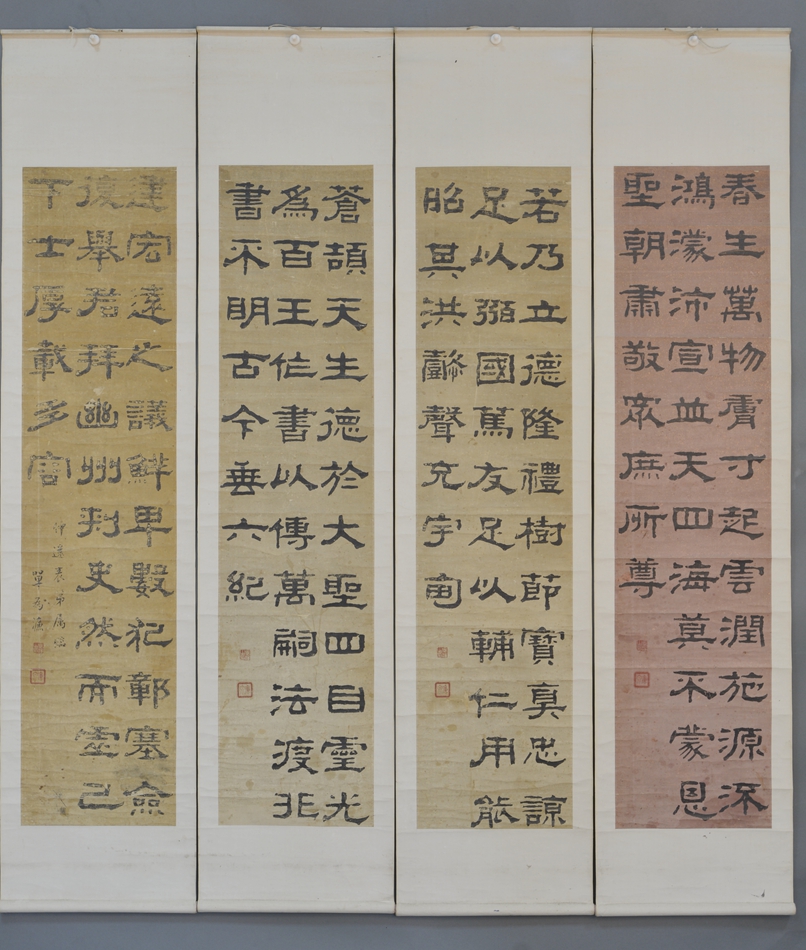 春生萬物膚寸起雲潤施源流
鴻濛沛宣並天四海莫不蒙恩
聖朝肅敬眾庶所尊
若乃立德隆禮樹節寶真忠諒
足以弼國篤友足以輔仁用能
昭其洪懿聲充宇甸
蒼頡天生德於大聖四目靈光
為百王作書以傳萬嗣法度非
書不明古今垂六紀
建宏遠之議鮮卑數犯鄣塞僉
復舉君拜幽州刺史然而虛己
下士厚載多容